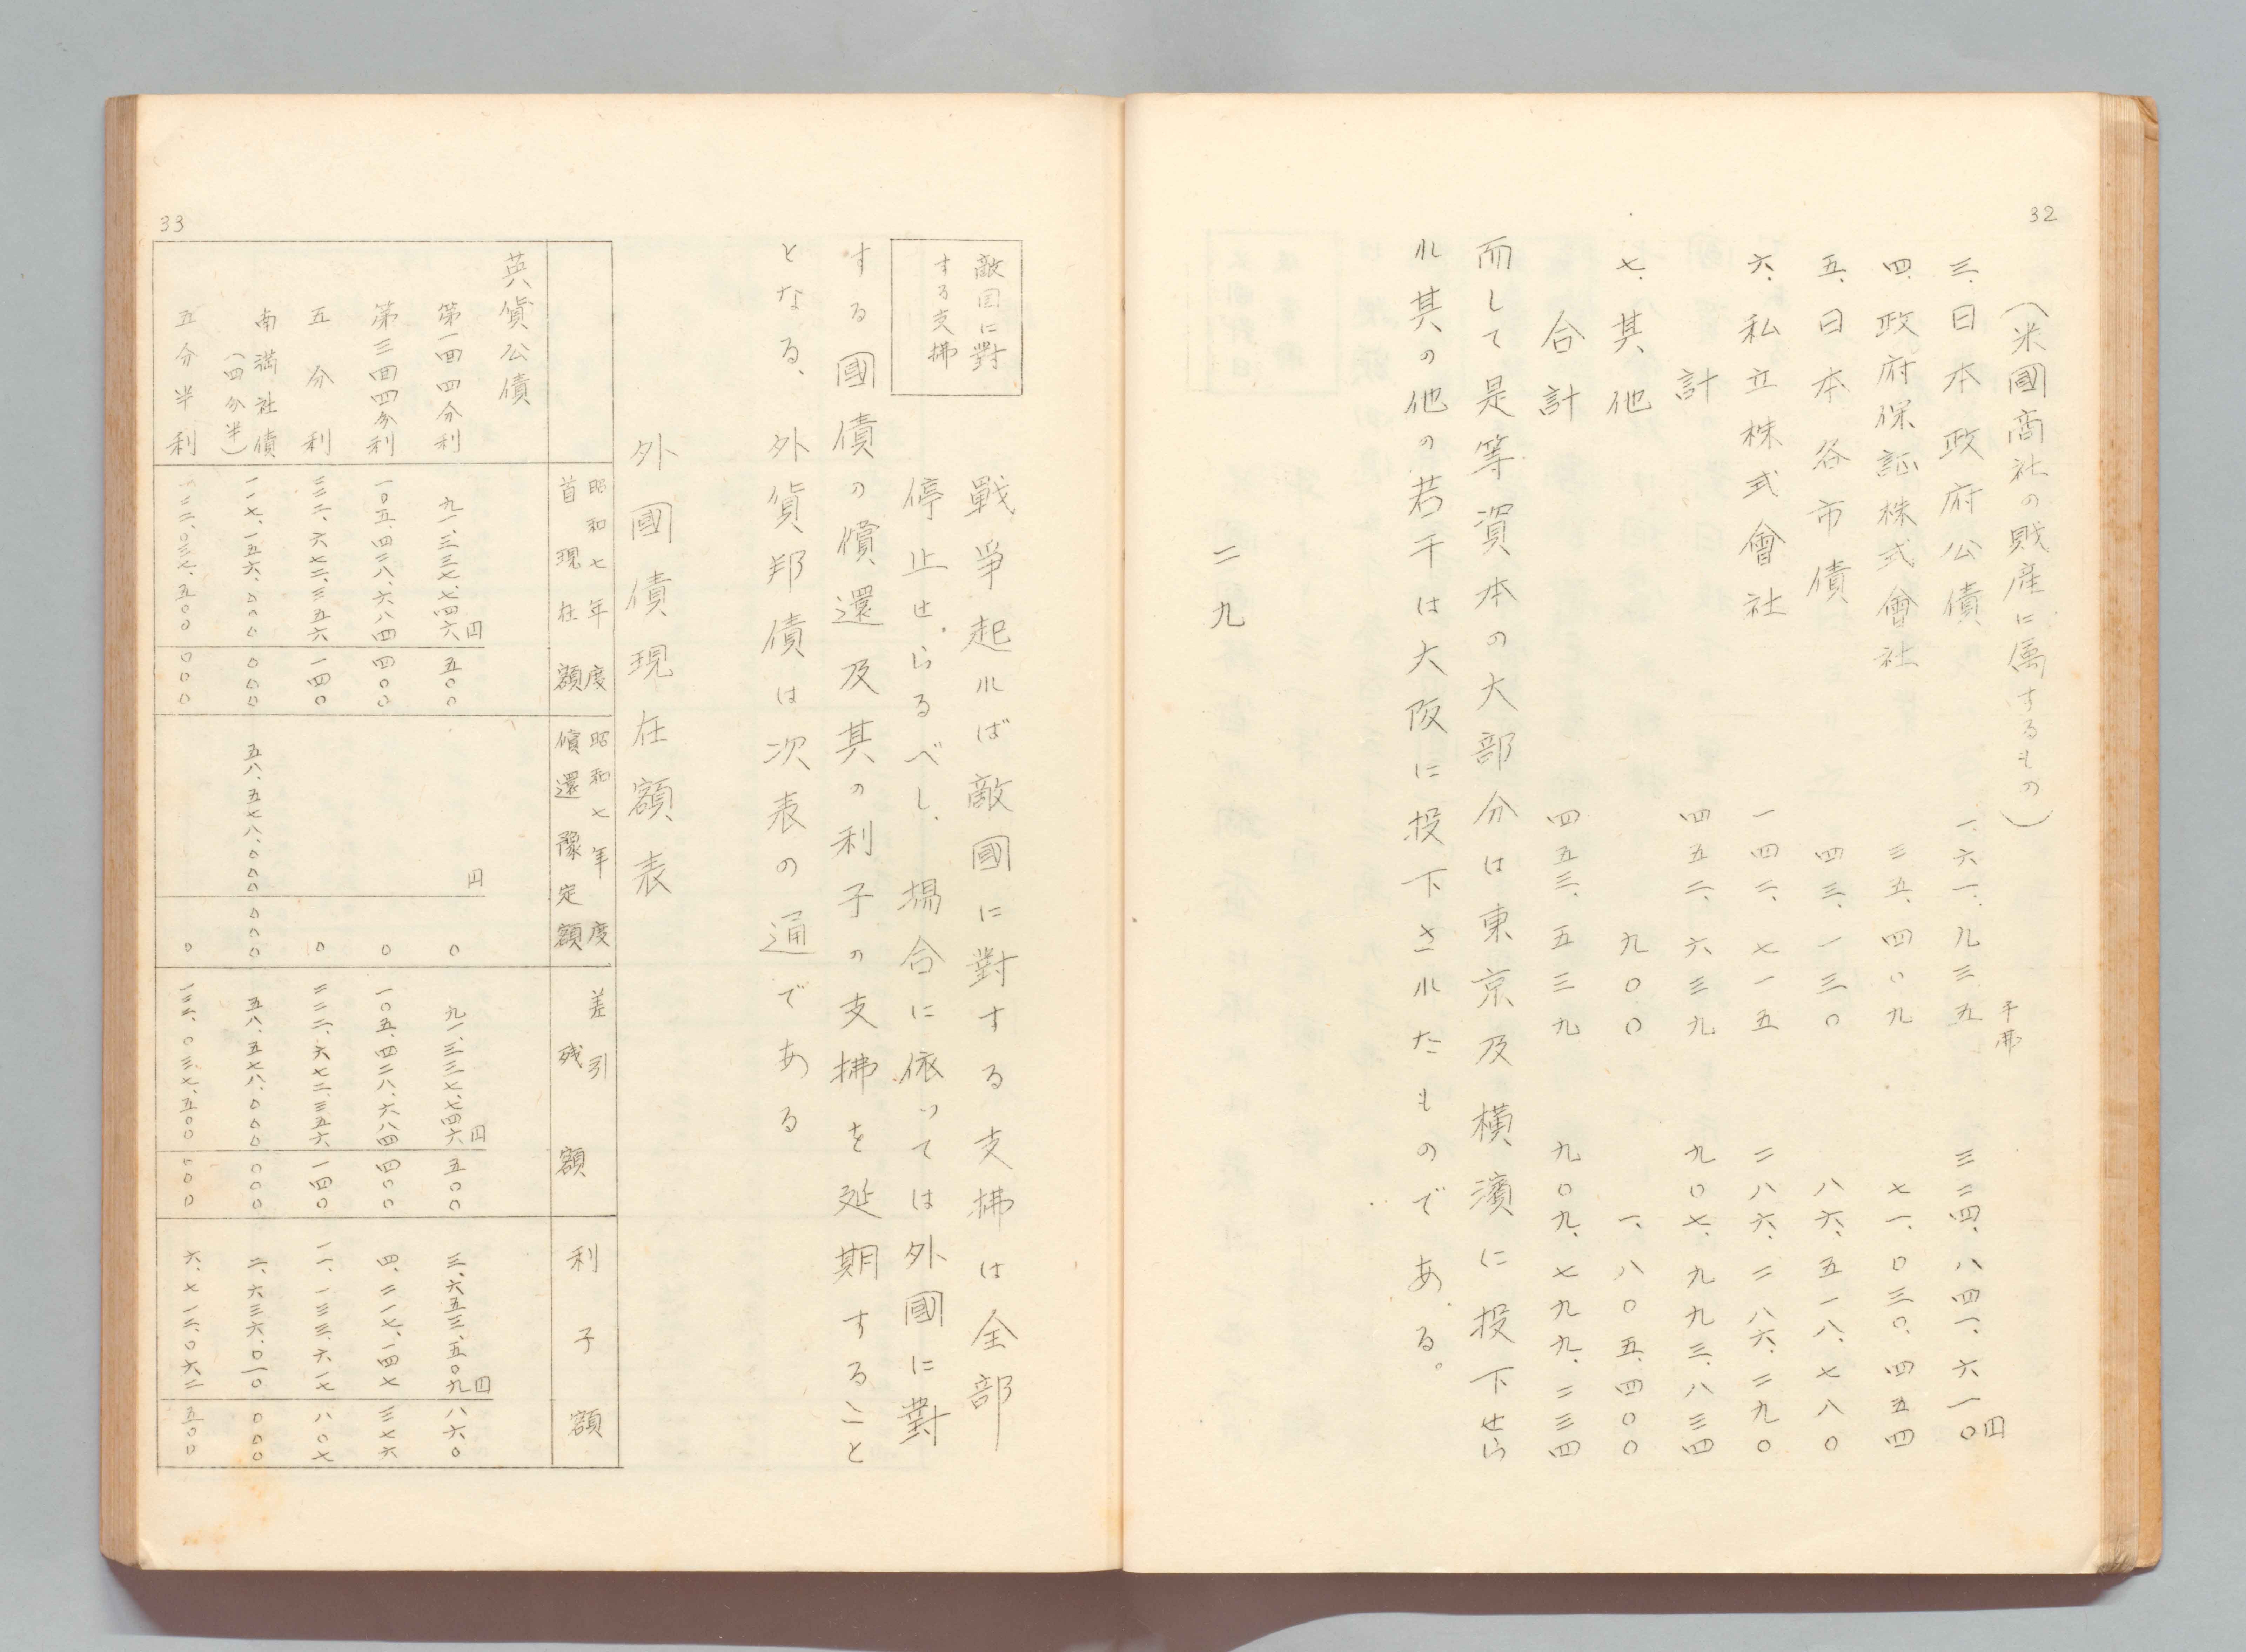 32
(米國商社の財産に属するもの)
千弗
三、日本政府公債 一、六一、九三五 三二四、八四一、六一〇円
四、政府保証株式會社 三五、四〇九 七一、〇三〇、四五四
五、日本各市債 四三、一三〇 八六、五一八、七八〇
六、私立株式會社 一四二、七一五 二八六、二八六、二九〇
計 四五二、六三九 九〇七、九九三、八三四
七、其他 九〇〇 一、八〇五、四〇〇
合計 四五三、五三九 九〇九、七九九、二三四
而して是等資本の大部分は東京及橫濱に投下せら
れ其の他の若干は大阪に投下されたものである。
二九
33
敵国に對
する支拂
戰爭起れば敵國に對する支拂は全部
停止せらるべし、場合に依っては外國に對
する國債の償還及其の利子の支拂を延期すること
となる、外貨邦債は次表の通である
外國債現在額表
昭和七年度
首現在額
昭和七年度
償還豫定額
差引
残額
利子額
英貨公債
第一回四分利 九一、三三七、七四六円 五〇〇 円 〇 九一、三三七、七四六円 五〇〇 三、六五三、五〇九円 八六〇
第三回四分利 一〇五、四二八、六八四 四〇〇 〇 一〇五、四二八、六八四 四〇〇 四、二一七、一四七 三七六
五分利 二二二、六七二、三五六 一四〇 〇 二二二、六七二、三五六 一四〇 一一、一三三、六一七 八〇七
南満社債
(四分半) 一一七、一五六、〇〇〇 〇〇〇 五八、五七八、〇〇〇 〇〇〇 五八、五七八、〇〇〇 〇〇〇 二、六三六、〇一〇 〇〇〇
五分半利 一二二、〇三七、五〇〇 〇〇〇 〇 一二二、〇三七、五〇〇 〇〇〇 六、七一二、〇六二 五〇〇